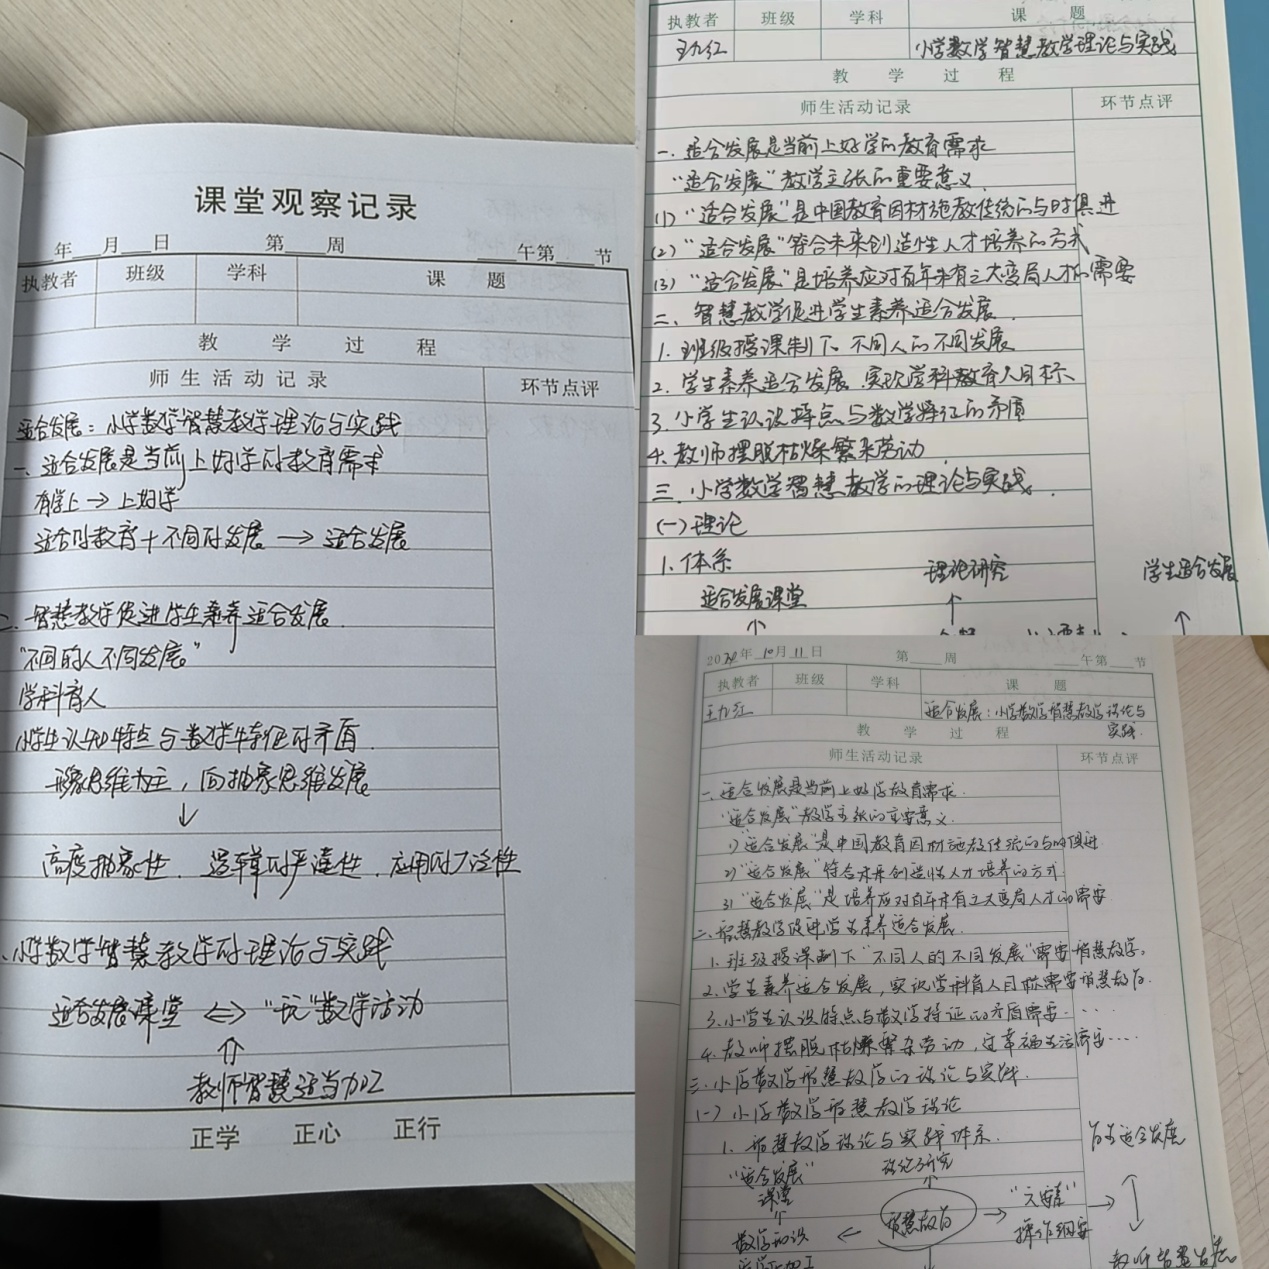 课堂观察记录
年 月 日 第 周 午第 节
执教者 班级 学科 课 题
教 学 过 程
师生活动记录 环节点评
适合发展：小学数学智慧教学理论与实践
一、适合发展是当前上好学的教育需求
有学上→上好学
适合的教育+不同的发展→适合发展
二、智慧教学促进学生素养适合发展.
“不同的人不同发展。”
学科育人
小学生认知特点与数学特征的矛盾.
形象思维为主，向抽象思维发展
↓
高度抽象性. 逻辑的严谨性. 应用的广泛性
、小学数学智慧教学的理论与实践
适合发展课堂 ⇔ “玩”数学活动
⇑
教师智慧适当加工
正学 正心 正行
执教者 班级 学科 课 题
王九红 小学数学智慧教学理论与实践
教 学 过 程
师生活动记录 环节点评
一、适合发展是当前上好学的教育需求
“适合发展”教学主张的重要意义.
(1)“适合发展”是中国教育因材施教传统的与时俱进
(2)“适合发展”符合未来创造性人才培养的方式
(3)“适合发展”是培养应对百年未有之大变局人才的需要
二、智慧教学促进学生素养适合发展.
1. 班级授课制下、不同人的不同发展
2. 学生素养适合发展、实现学科教育人目标、
3. 小学生认识特点与数学特征的矛盾
4. 教师摆脱枯燥繁杂劳动.
三、小学数学智慧教学的理论与实践.
(一)理论
1. 体系 理论研究 学生适合发展
适合发展课堂 ↑ ↑
↑
2024年10月11日 第 周 午第 节
执教者 班级 学科 课 题
王九红 适合发展：小学数学智慧教学理论与
实践.
教 学 过 程
师生活动记录 环节点评
一、适合发展是当前上好学教育需求.
“适合发展”教学主张的重要意义.
1)“适合发展”是中国教育因材施教传统的与时俱进
2)“适合发展”符合未来创造性人才培养的方式
3)“适合发展”是培养应对百年未有之大变局人才的需要
二、智慧教学促进学生素养适合发展.
1. 班级授课制下“不同人的不同发展”需要智慧教学。
2. 学生素养适合发展，实现学科育人目标需要智慧教学.
3. 小学生认识特点与数学特征的矛盾需要....
4. 教师摆脱枯燥繁杂劳动，过幸福生活需要....
三、小学数学智慧教学的理论与实践.
(一) 小学数学智慧教学理论
1. 智慧教学理论与实践体系. 学生适合发展
“适合发展” 理论研究
课堂 ↑ “元
↑ 智慧教学 → 操作纲要 → ↕
数学知识 ←
加工 ↓ 教师智慧生活